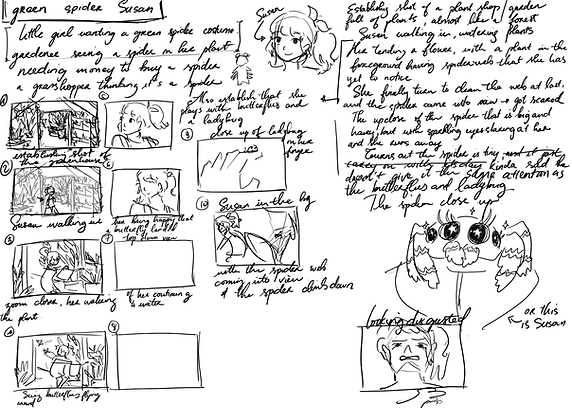 green spider Susan
Little girl wanting a green spider costume
gardener seeing a spider in her plant
needing money to buy a spider
a grasshopper thinking it's a spider
Susan
Also establish that she
plays with butterflies and
a ladybug
establishing shot of
the greenhouse
Susan walking in
zoom closer, her walking
the plant
Seeing butterflies flying
around
her being happy that
a butterfly landed
top down view
of her continuing
to water
close up of ladybug
in her
finger
Susan in the bg
with the spider web
coming into view
& the spider climbs down
Establish shot of a plant shop/garden
full of plants, almost like a forest
Susan walking in, watering plants
Her tending a flower, with a plant in the
foreground having spiderweb that she has
yet to notice
She finally turn to clean the web at last,
and the spider came into view & got scared
The upclose of the spider that is big and
hairy, but with sparkling eyes staring at her
and she runs away
Turns out the spider is tiny, and it just
kinda sad she
doesn't give it the same attention as
the butterflies and ladybug
The spider close up
looking disgusted
or this
is Susan